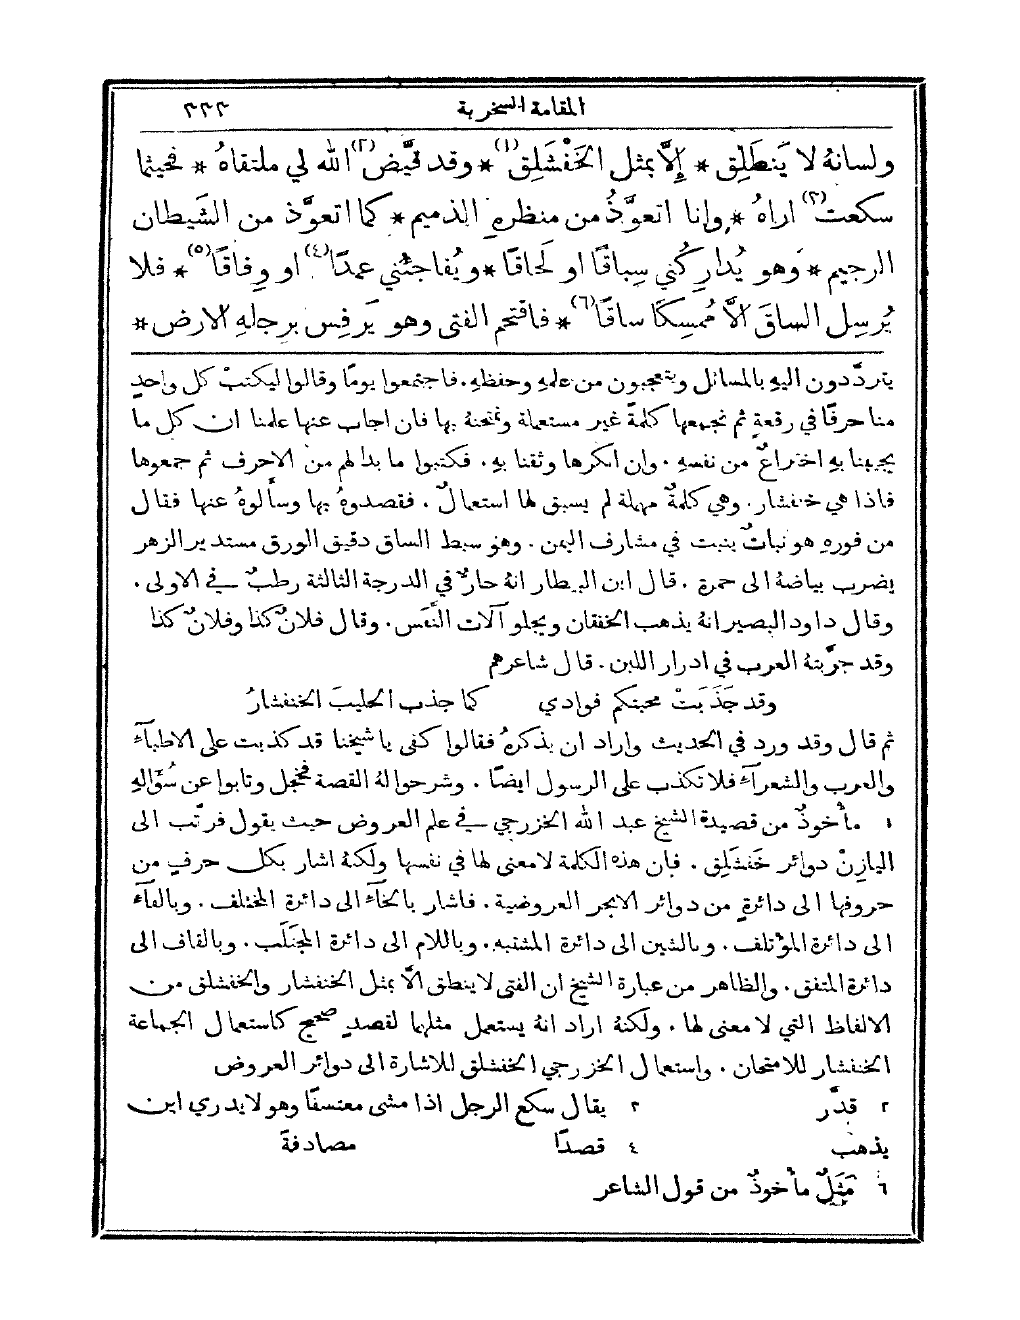 المقامة السخرية ٣٣٣
ولسانهُ لا يَنطَلِق * إِلاَّ بمثل الخَفْشَلِق(١) * وقد قَيَّض(٢) الله لي ملتقاهُ * فحيثما
سكعت(٣) اراهُ * وانا اتعوَّذُ من منظرهِ الذميم * كما اتعوَّذ من الشَيطان
الرجيم * وهو يُدارِكُني سِباقًا او لَحاقًا * ويُفاجئُني عمدًا(٤) او وِفاقًا(٥) * فلا
يُرسِل الساقَ الاَّ مُمسِكًا ساقًا(٦) * فاقتحم الفتى وهو يَرفِس برجلهِ الارض *
يتردَّدون اليهِ بالمسائل ويتعجبون من علمهِ وحفظهِ. فاجتمعوا يومًا وقالوا ليكتبْ كل واحدٍ
منا حرفًا في رقعةٍ ثم نجمعها كلمةً غير مستعملة ونمتحنهُ بها فان اجاب عنها علمنا ان كل ما
يجيبنا بهِ اختراعٌ من نفسهِ. وان انكرها وثقنا بهِ. فكتبوا ما بدا لهم من الاحرف ثم جمعوها
فاذا هي خنفشار. وهي كلمةٌ مهملة لم يسبق لها استعمالٌ. فقصدوهُ بها وسألوهُ عنها فقال
من فورهِ هو نباتٌ ينبت في مشارف اليمن. وهو سبط الساق دقيق الورق مستدير الزهر
يضرب بياضهُ الى حمرة. قال ابن البيطار انهُ حارٌّ في الدرجة الثالثة رطبٌ في الاولى.
وقال داود البصير انهُ يذهب الخفقان ويجلو آلات النَّفَس. وقال فلانٌ كذا وفلانٌ كذا
وقد جرَّبتهُ العرب في ادرار اللبن. قال شاعرهم
وقد جَذَبَتْ محبتكم فوادي كما جذب الحليبَ الخنفشارُ
ثم قال وقد ورد في الحديث واراد ان يذكرهُ فقالوا كفى يا شيخنا قد كذبت على الاطبآء
والعرب والشعرآء فلا تكذب على الرسول ايضًا. وشرحوا لهُ القصة فخجل وتابوا عن سُؤالهِ
١ مأخوذٌ من قصيدة الشيخ عبد الله الخزرجي في علم العروض حيث يقول فرتّب الى
اليازنْ دوائر خَفشَلِق. فان هذه الكلمة لا معنى لها في نفسها ولكنهُ اشار بكل حرفٍ من
حروفها الى دائرةٍ من دوائر الابحر العروضية. فاشار بالخآء الى دائرة المختلف. وبالفآء
الى دائرة المؤتلف. وبالشين الى دائرة المشتبه. وباللام الى دائرة المجتلَب. وبالقاف الى
دائرة المتفق. والظاهر من عبارة الشيخ ان الفتى لا ينطق الاَّ بمثل الخنفشار والخفشلق من
الالفاظ التي لا معنى لها. ولكنهُ اراد انهُ يستعمل مثلهما لقصدٍ صحيح كاستعمال الجماعة
الخنفشار للامتحان. واستعمال الخزرجي الخفشلق للاشارة الى دوائر العروض
٢ قدَّر ٣ يقال سكع الرجل اذا مشى معتسفًا وهو لا يدري اين
يذهب ٤ قصدًا مصادفةً
٦ مَثَلٌ مأخوذٌ من قول الشاعر